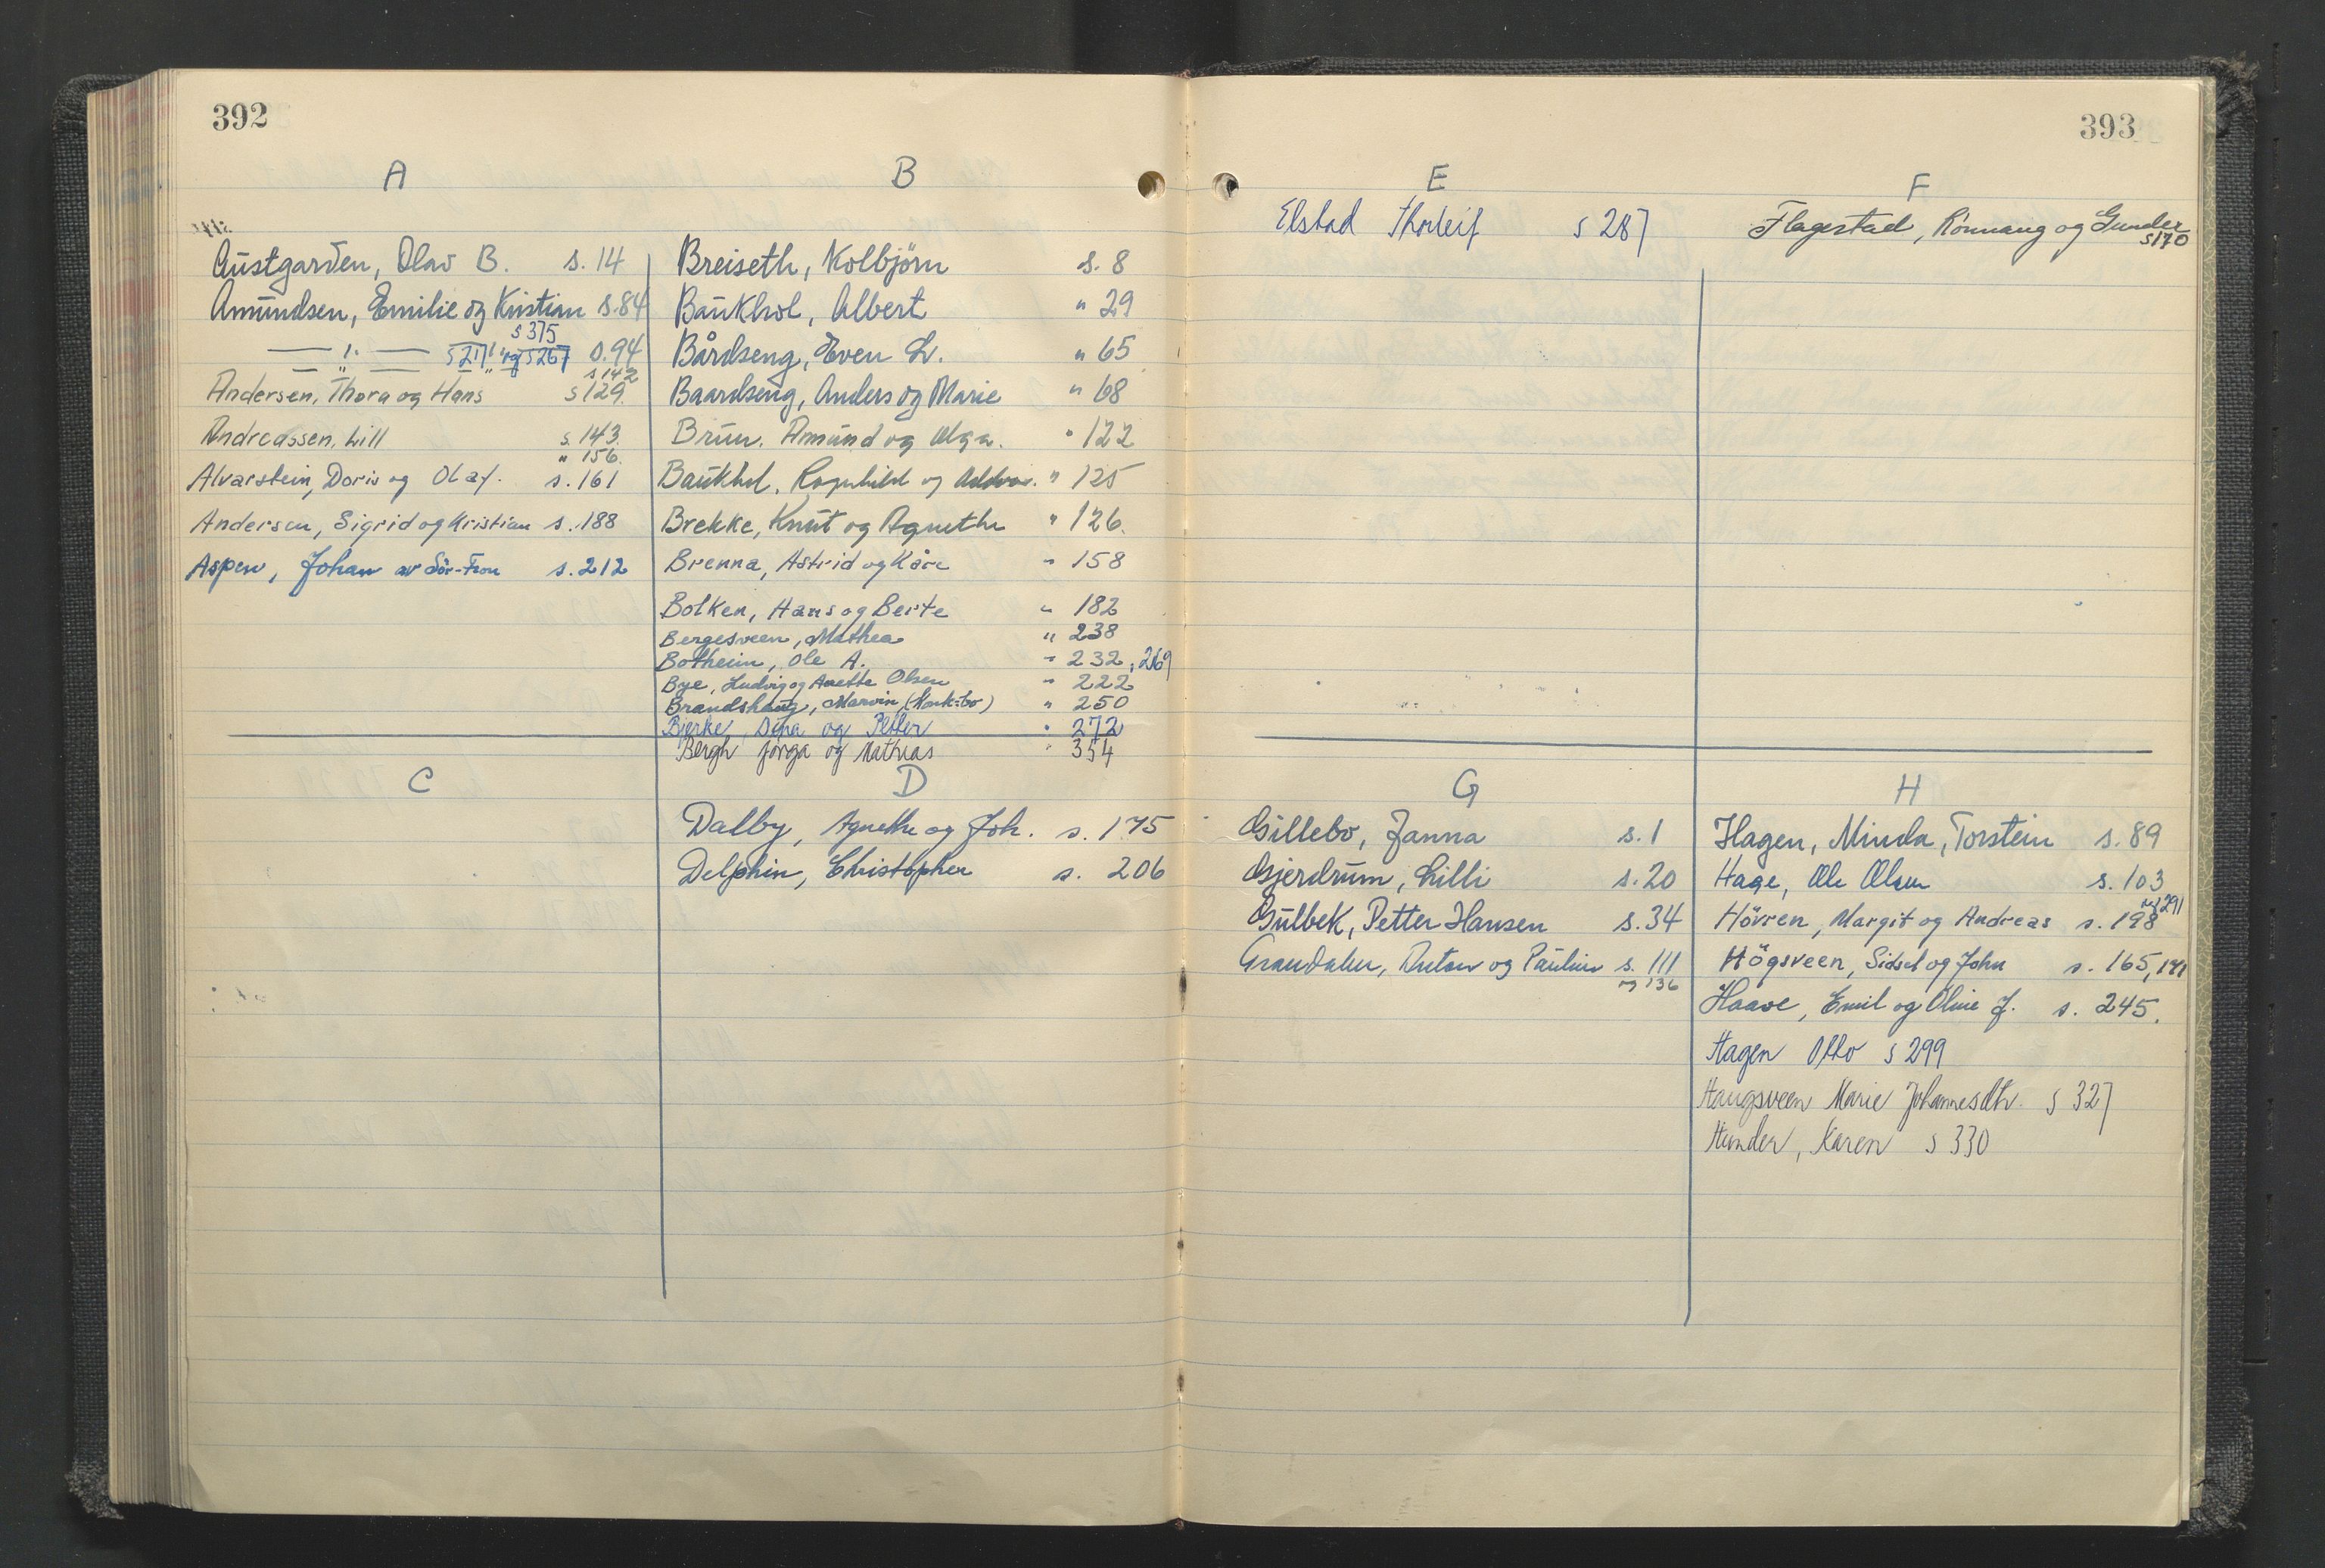 392
A
Austgarden, Olav B. s. 14
Amundsen, Emilie og Kristian s. 84
s 375
— " — s 217 og s 267 s. 94
— " — s 142
Andersen, Thora og Hans s 129.
Andreassen, Lill s. 143.
" 156.
Alvarstein, Doris og Olaf. s. 161
Andersen, Sigrid og Kristian s. 188
Aspen, Johan av Sör-Fron s. 212
B
Breiseth, Kolbjörn s. 8
Baukhol, Albert " 29
Bårdseng, Even L. " 65
Baardseng, Anders og Marie " 68
Brun. Amund og Olga. " 122
Baukhol, Ragnhild og " 125
Brekke, Knut og Agnethe " 126.
Brenna, Astrid og Kåre " 158
Bolken, Hans og Berte " 182
Bergesveen, Mathea " 238
Botheim, Ole A. " 232, 269
Bye, Ludvig og Anette Olsen " 222
Brandshaug, Marvin " 250
Bjerke, og Petter " 272
Bergh Jörga og Mathias " 354
C
D
Dalby, Agnethe og Joh. s. 175
Delphin, Christopher s. 206
393
E
Elstad Thorleif s 287
F
Flagestad, Rönnaug og Gunder
s 170
G
Gillebo, Janna s. 1
Gjerdrum, Lilli s. 20
Gulbek, Petter Hansen s. 34
Graudalen, Anton og Pauline s. 111
og 136
H
Hagen, Minda, Torstein s. 89
Hage, Ole Olsen s. 103
og 291
Hövren, Margit og Andreas s. 198
Högsveen, Sidsel og John s. 165, 171
Haave, Emil og Oline J. s. 245.
Hagen Otto s 299
Haugsveen Marie Johannesdtr. s 327
Hunder, Karen s 330